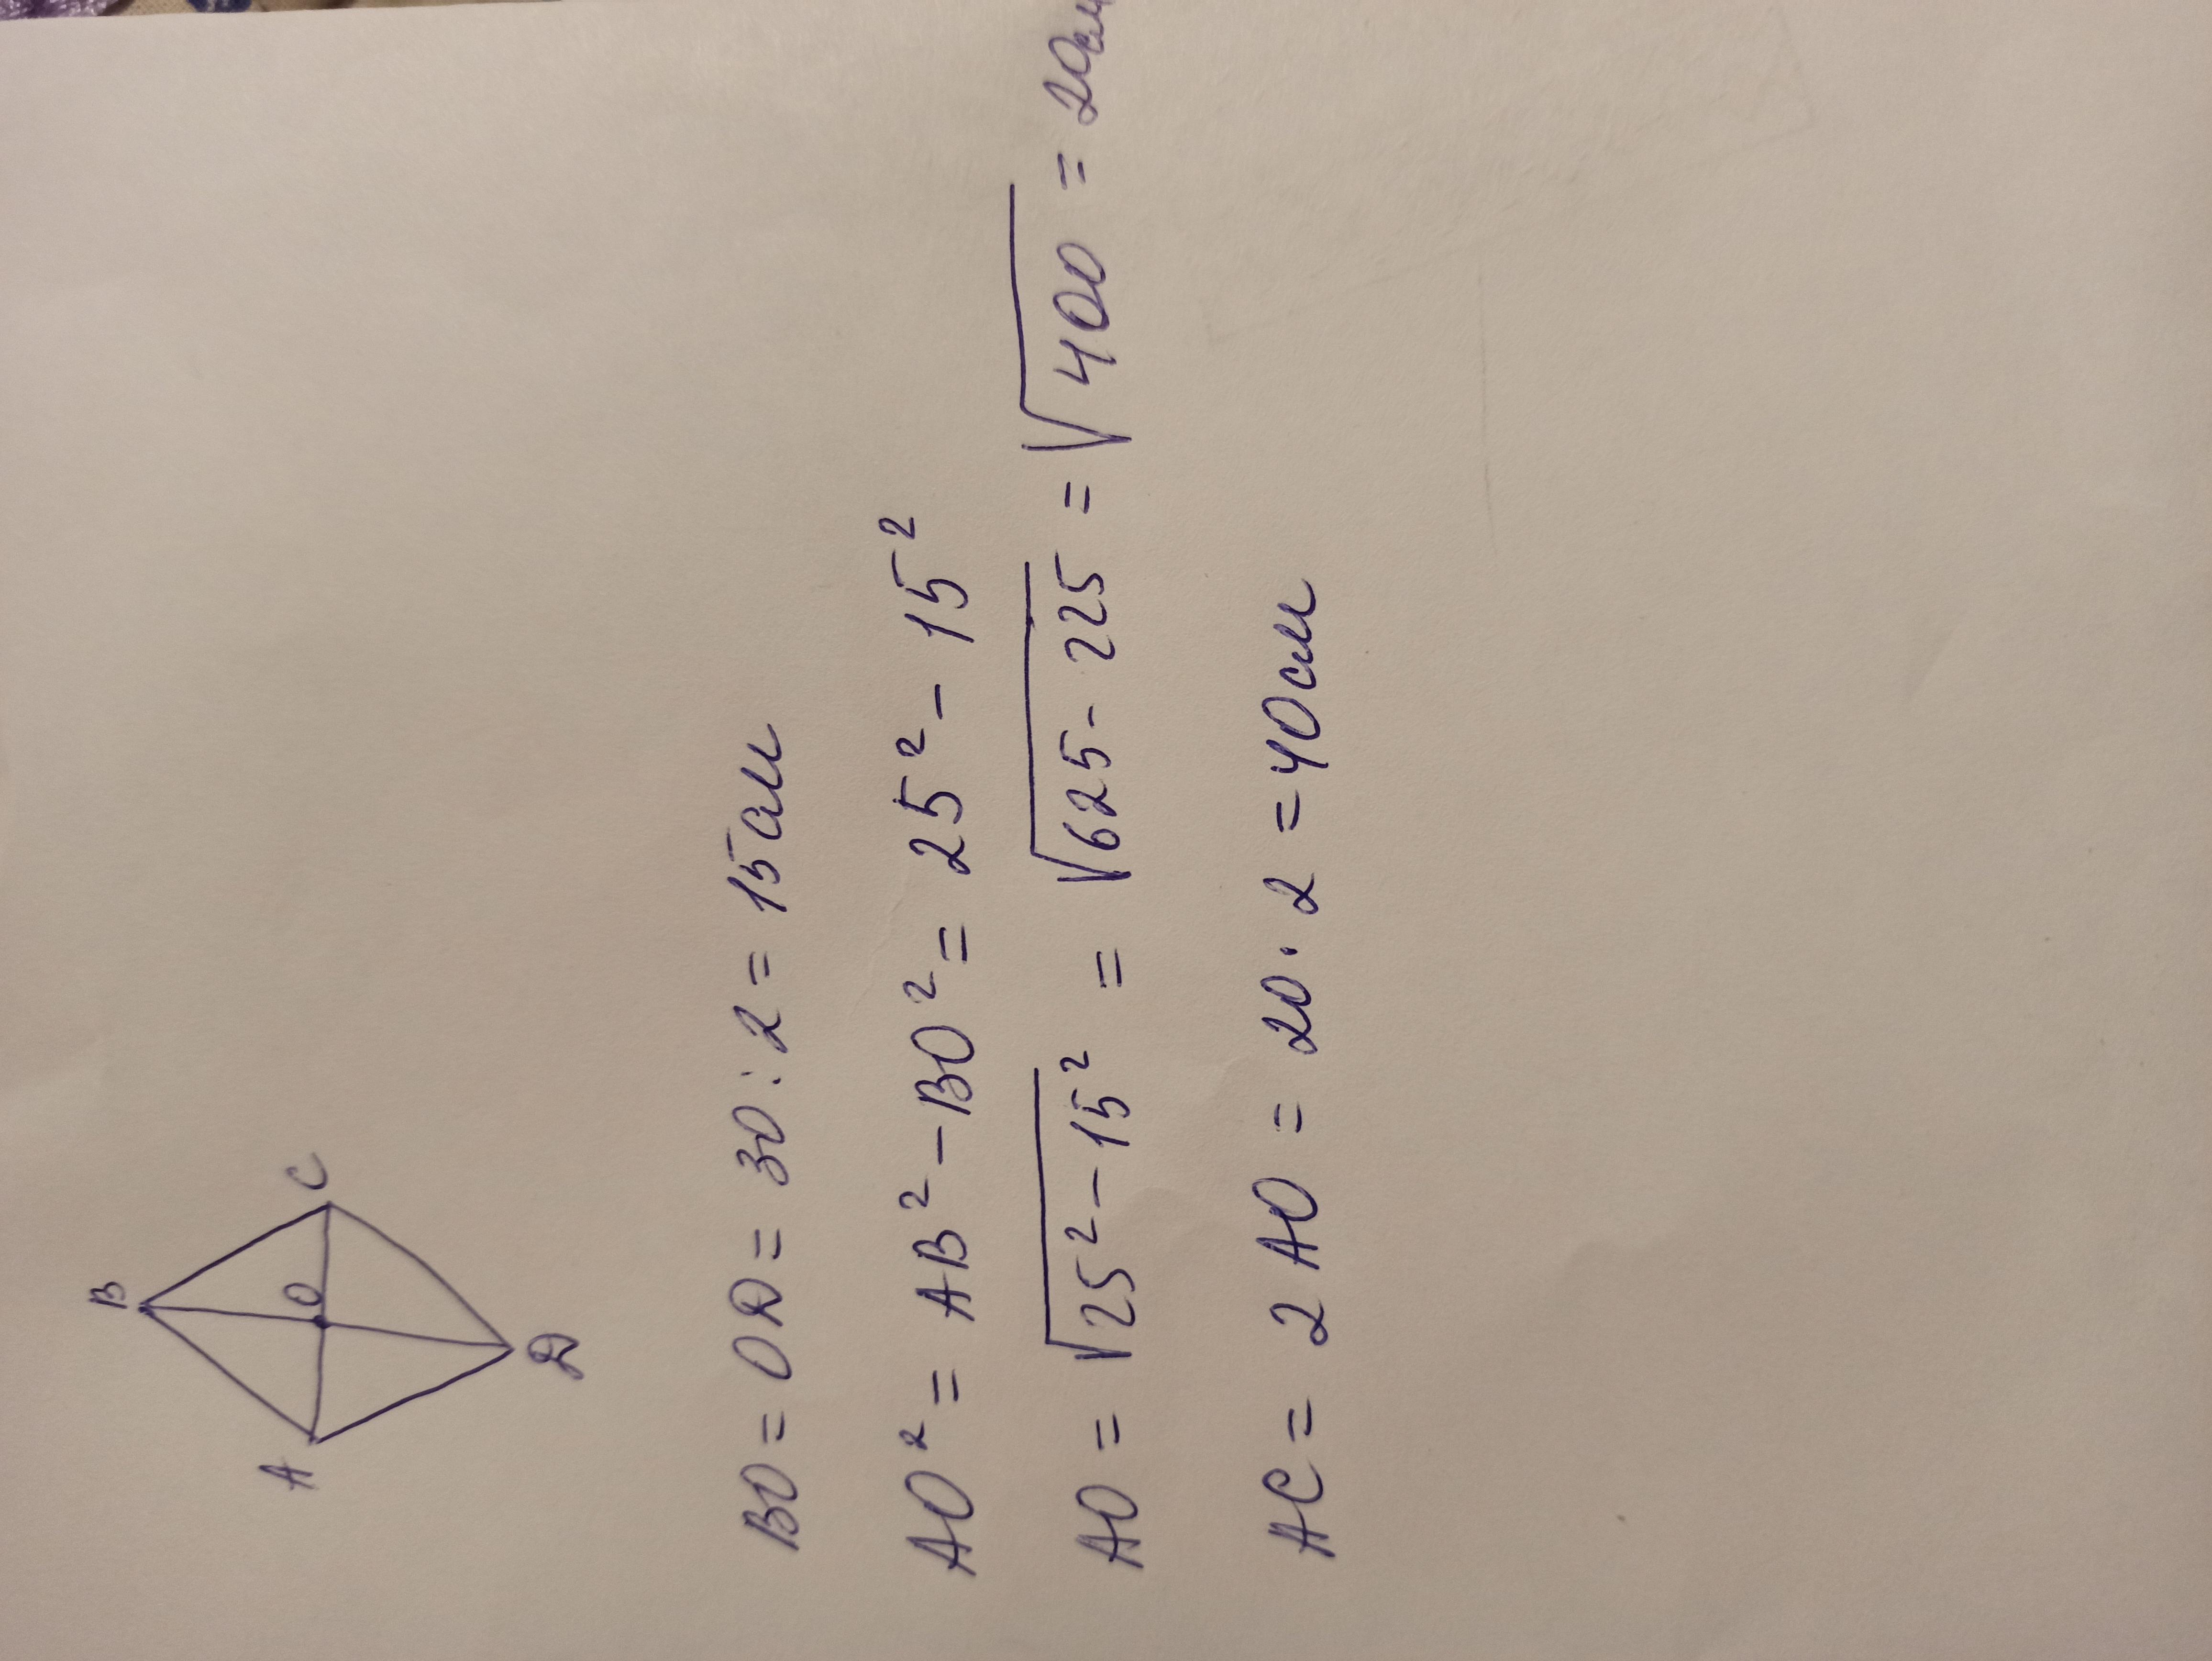 B
A
O
C
D
BO = OD = 30 : 2 = 15 см
AO² = AB² - BO² = 25² - 15²
AO = √25² - 15² = √625 - 225 = √400 = 20см
AC = 2 AO = 20 · 2 = 40см